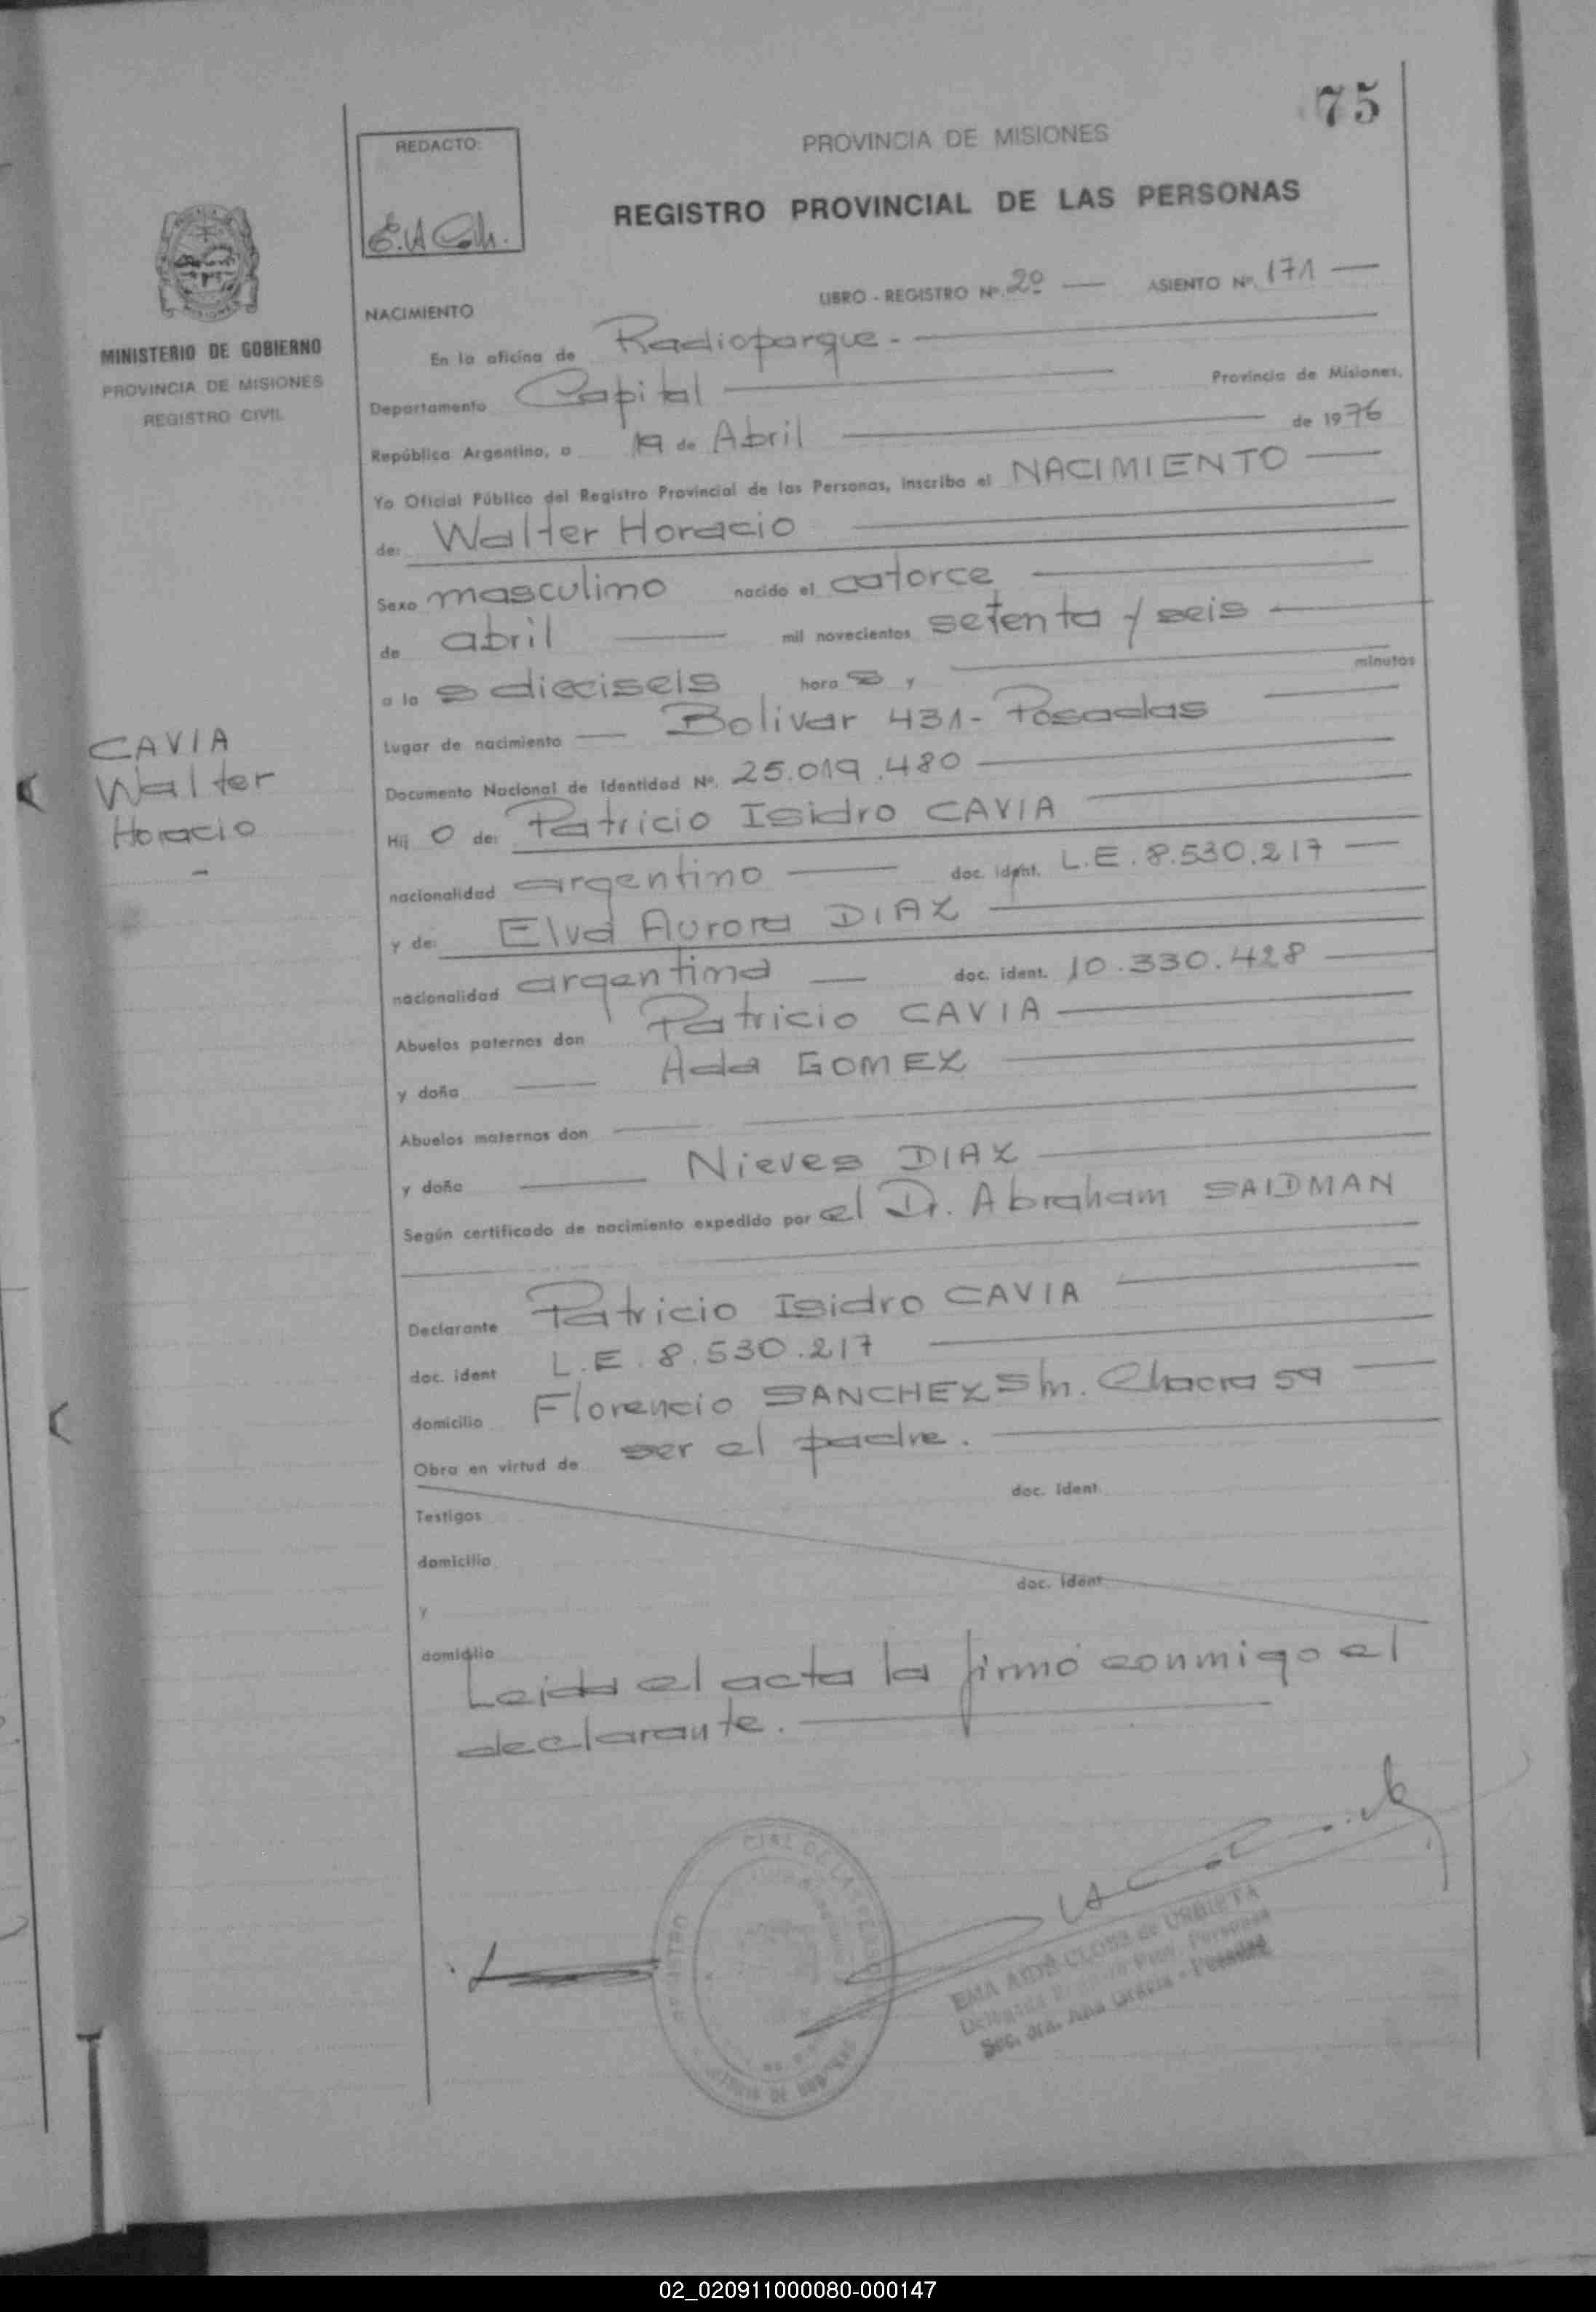 75
REDACTO:
PROVINCIA DE MISIONES
REGISTRO PROVINCIAL DE LAS PERSONAS
MINISTERIO DE GOBIERNO
PROVINCIA DE MISIONES
REGISTRO CIVIL
LIBRO - REGISTRO Nº. 2º — ASIENTO Nº. 171 —
NACIMIENTO
En la oficina de Radioparque. —
Departamento Capital — Provincia de Misiones,
República Argentina, a 19 de Abril — de 1976
Yo Oficial Público del Registro Provincial de las Personas, inscribo el NACIMIENTO —
de: Walter Horacio —
Sexo masculino nacido el catorce —
de abril — mil novecientos setenta y seis —
a la s dieciseis hora s y — minutos
Lugar de nacimiento — Bolivar 431 - Posadas —
Documento Nacional de Identidad Nº. 25.019.480 —
CAVIA
Walter
Horacio
-
Hij o de: Patricio Isidro CAVIA —
nacionalidad argentino — doc. ident. L.E. 8.530.217 —
y de: Elva Aurora DIAZ —
nacionalidad argentina — doc. ident. 10.330.428 —
Abuelos paternos don Patricio CAVIA —
y doña — Ada GOMEZ —
Abuelos maternos don —
y doña — Nieves DIAZ —
Según certificado de nacimiento expedido por el Dr. Abraham SAIDMAN
Declarante Patricio Isidro CAVIA —
doc. ident L.E. 8.530.217 —
domicilio Florencio SANCHEZ S/n. Chacra 59 —
Obra en virtud de ser el padre. —
doc. ident
Testigos
domicilio
doc. ident
y
domicilio
Leida el acta la firmó conmigo el
declarante. —
CIAL DE LAS PERSO
EMA AIDÉ CLOSS de URBIETA
Delegada Registro Prov. Personas
Sec. 8ra. Ana Gracia - Posadas
02_020911000080-000147